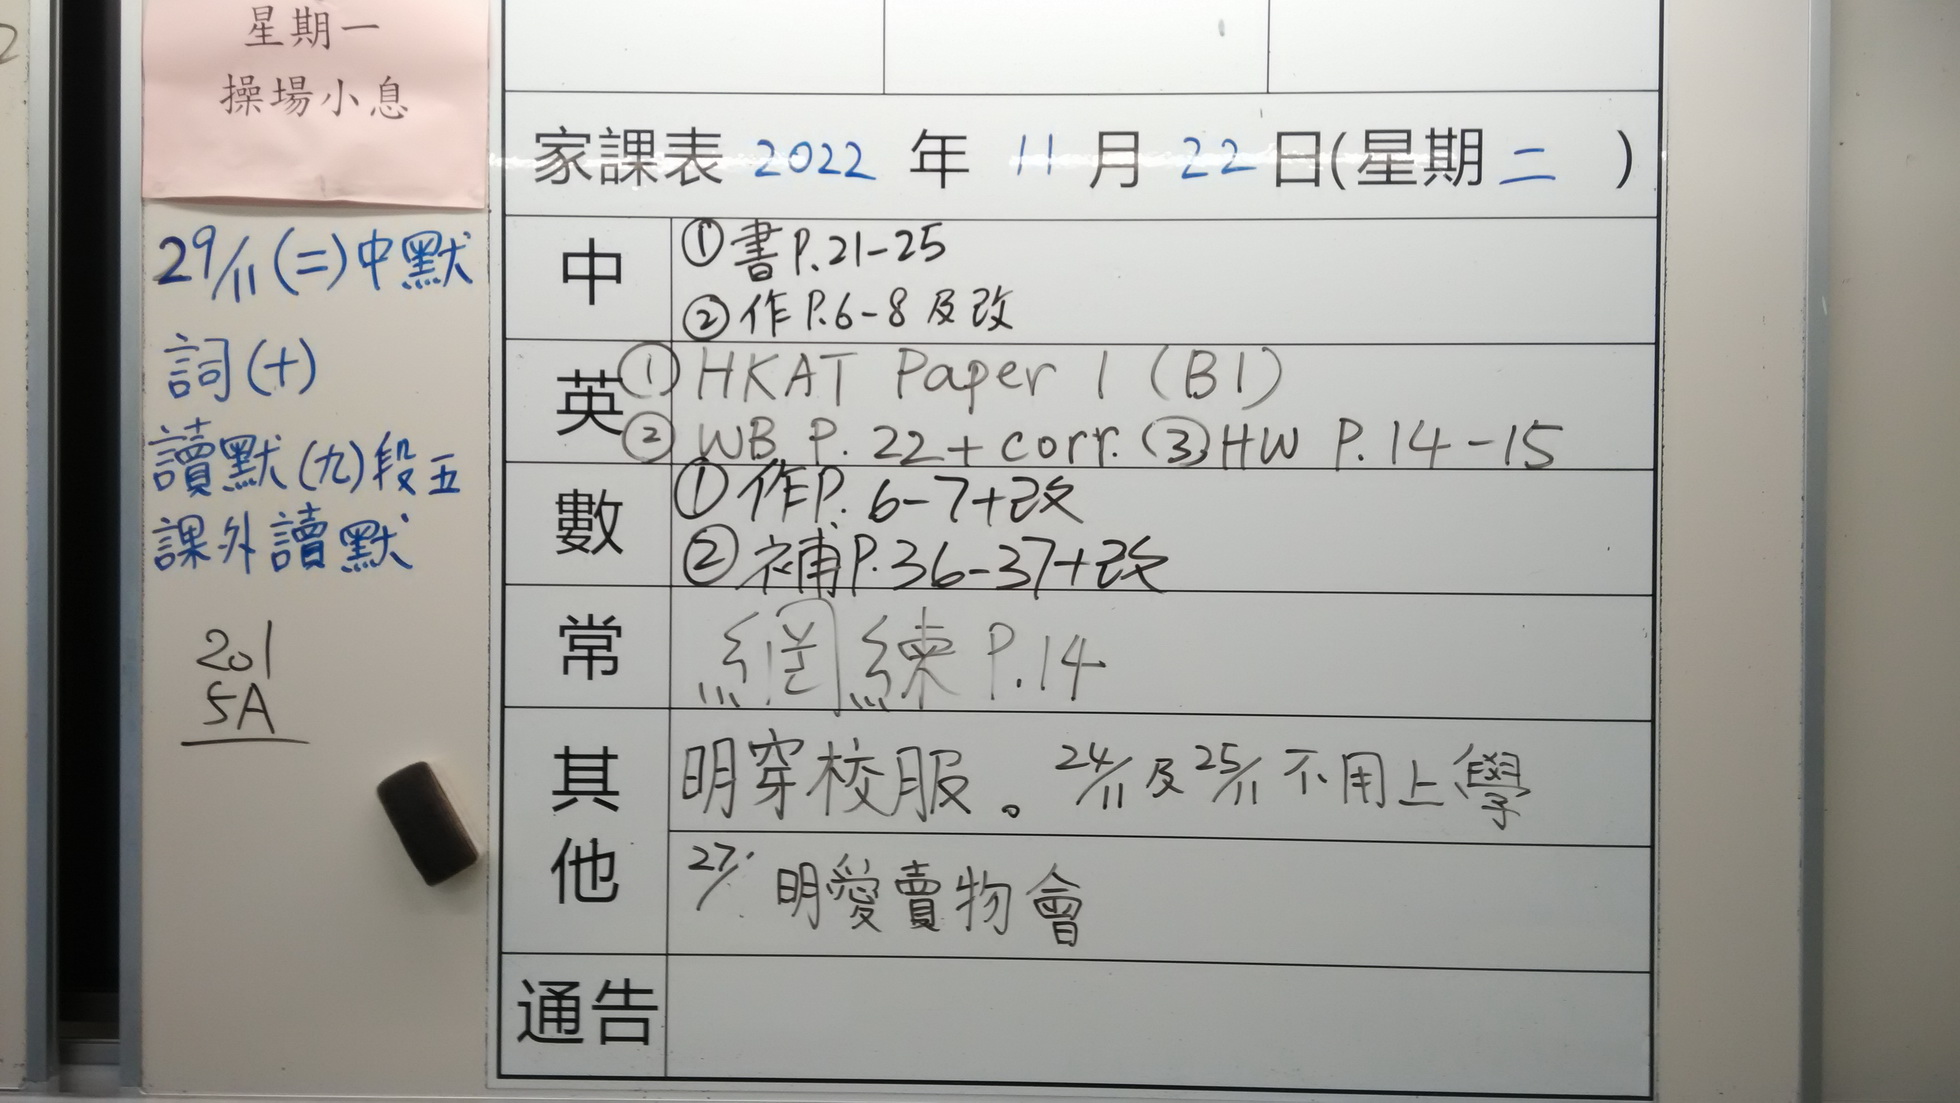 星期一
操場小息
29/11(二)中默
詞(十)
讀默(九)段五
課外讀默
201
5A
家課表 2022 年 11 月 22 日(星期 二 )
中
①書P.21-25
②作P.6-8及改
英
①HKAT Paper 1 (B1)
②WB P.22+corr. ③HW P.14-15
數
①作P.6-7+改
②補P.36-37+改
常
網練P.14
其他
明穿校服。24/11及25/11不用上學
27/ 明愛賣物會
通告